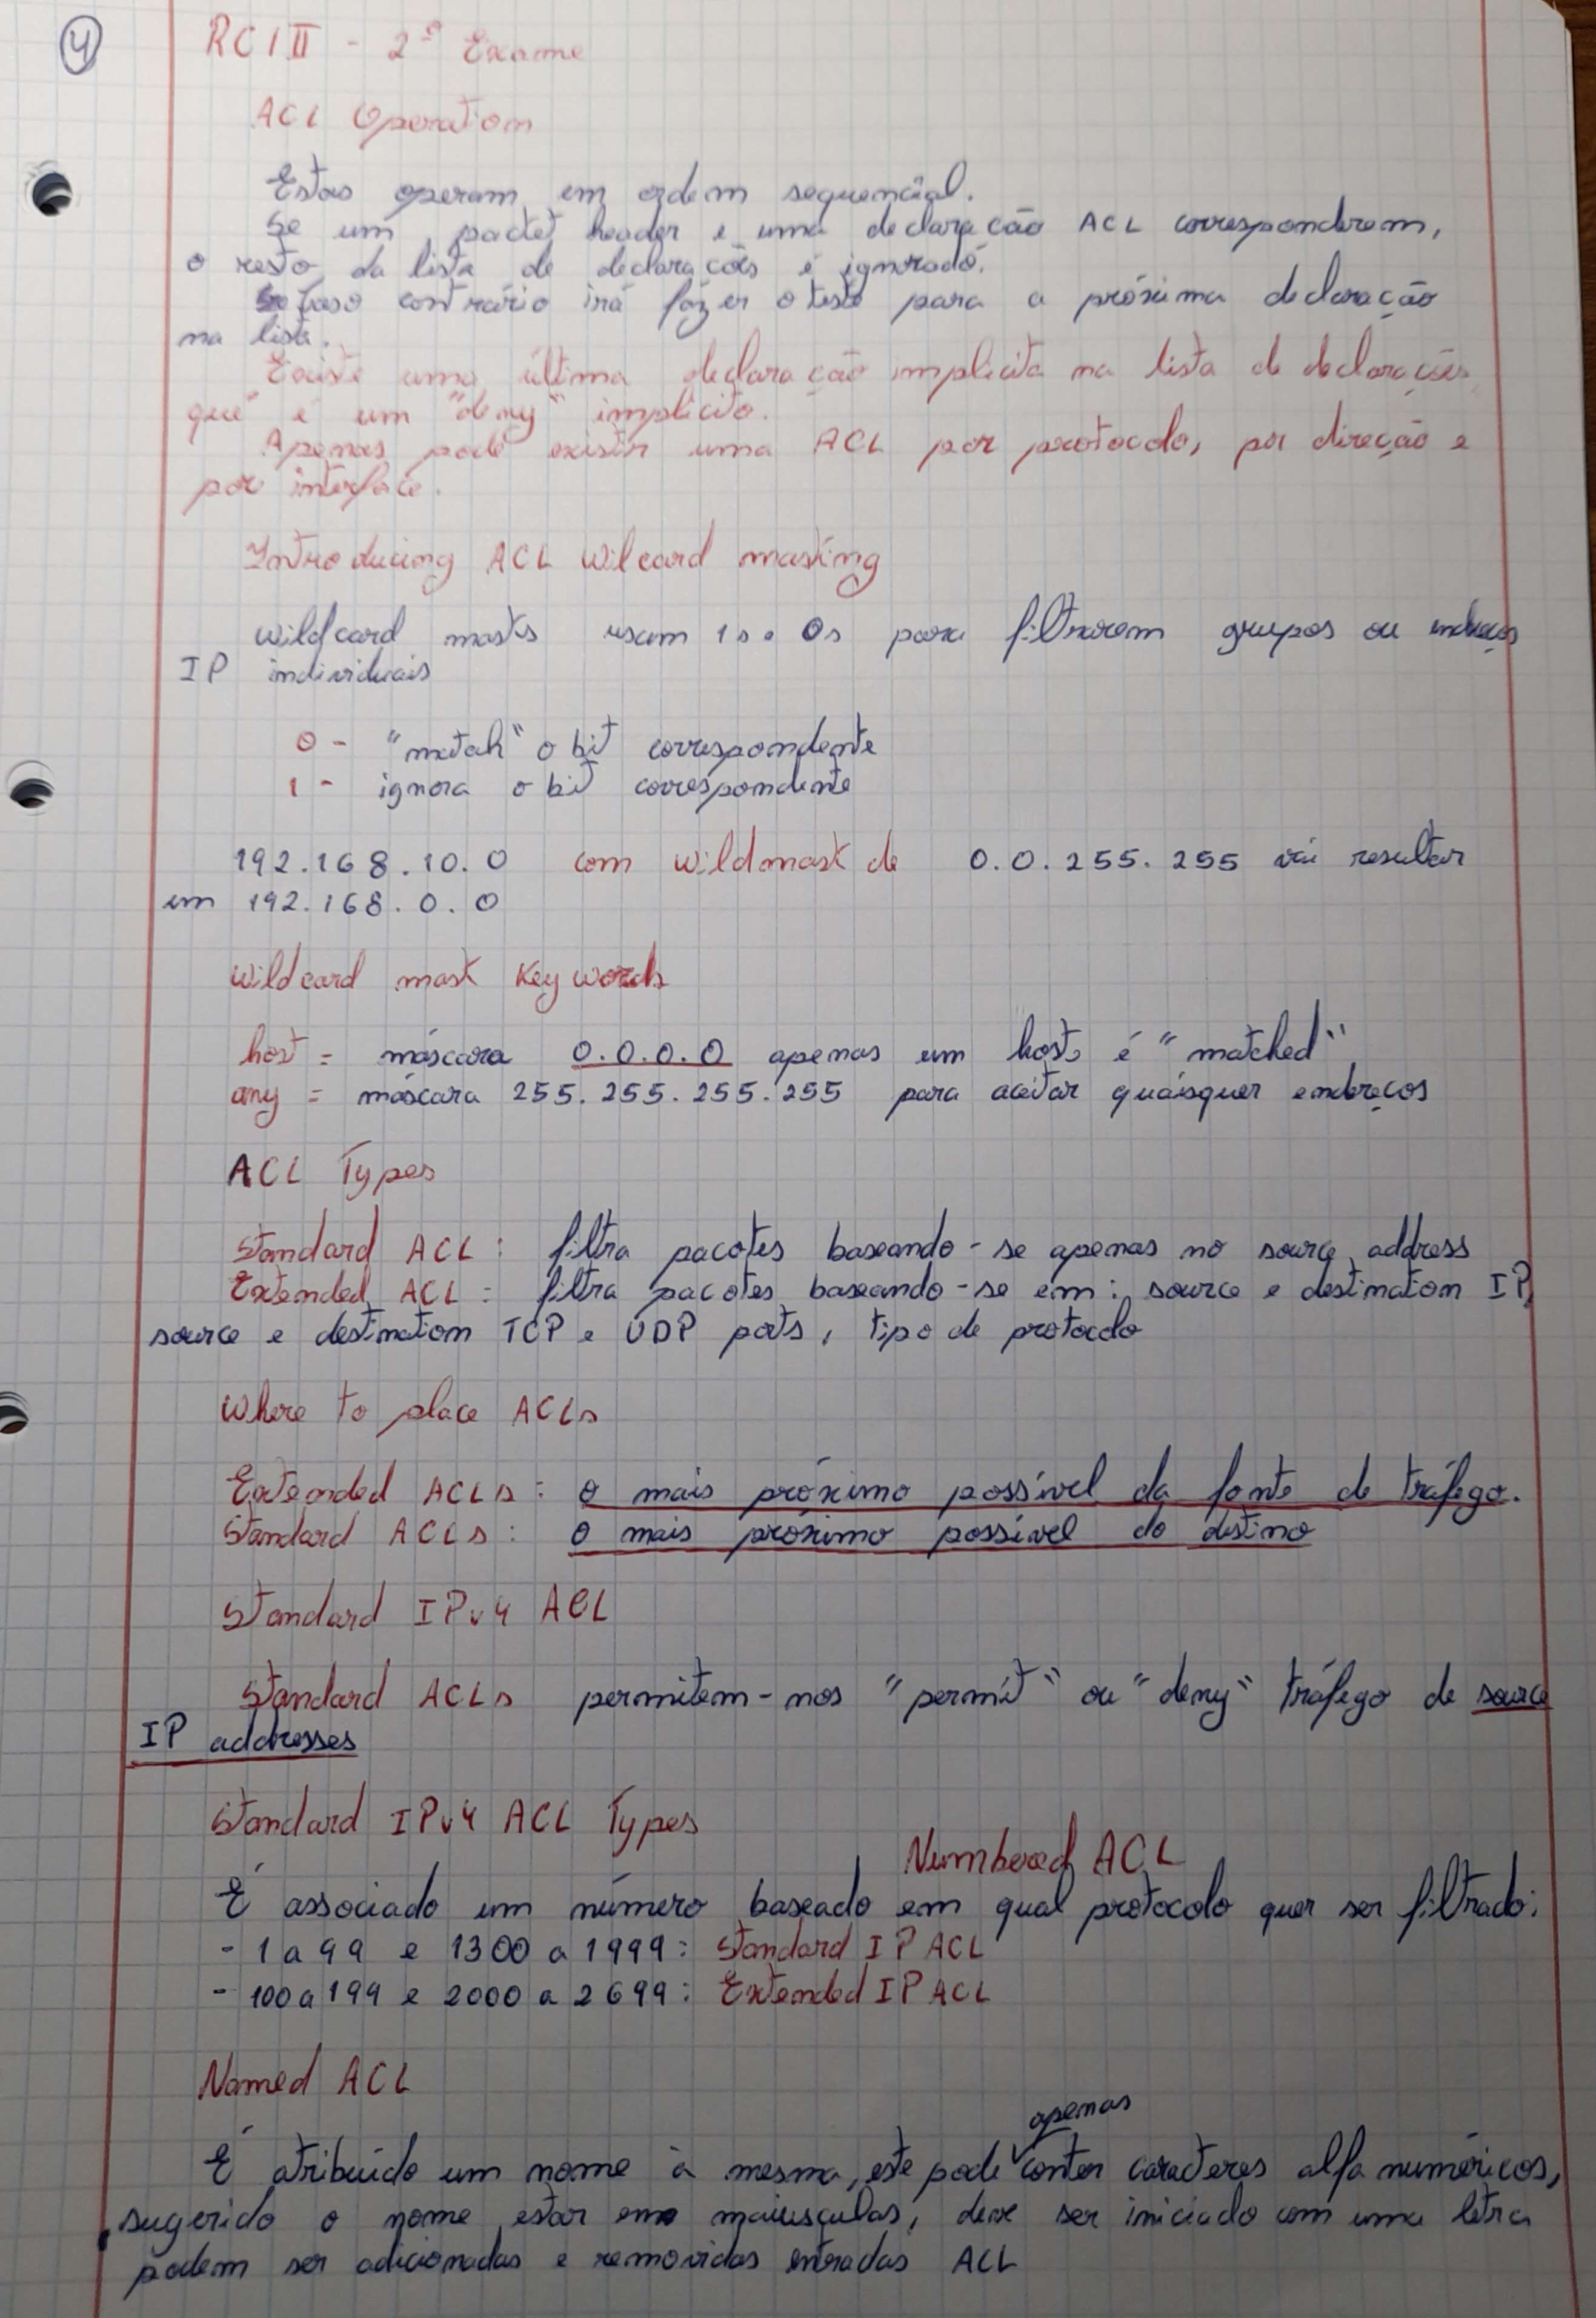 4
RCI II - 2º Exame
ACL Operation
Estas operam em ordem sequencial.
Se um packet header e uma declaração ACL corresponderem,
o resto da lista de declarações é ignorado.
caso contrário irá fazer o teste para a próxima declaração
na lista.
Existe uma última declaração implícita na lista de declarações
que é um "deny" implícito.
Apenas pode existir uma ACL por protocolo, por direção e
por interface.
Introducing ACL Wilcard masking
Wildcard masks usam 1s e 0s para filtrarem grupos ou endereços
IP individuais
0 - "match" o bit correspondente
1 - ignora o bit correspondente
192.168.10.0 com wildmask de 0.0.255.255 vai resultar
em 192.168.0.0
Wildcard mask Key words
host = máscara 0.0.0.0 apenas um host é "matched"
any = máscara 255.255.255.255 para aceitar quaisquer endereços
ACL Types
Standard ACL: filtra pacotes baseando-se apenas no source address
Extended ACL: filtra pacotes baseando-se em: source e destination IP,
source e destination TCP e UDP ports, tipo de protocolo
Where to place ACLs
Extended ACLs: o mais próximo possível da fonte de tráfego.
Standard ACLs: o mais próximo possível do destino
Standard IPv4 ACL
Standard ACLs permitem-nos "permit" ou "deny" tráfego de source
IP addresses
Standard IPv4 ACL Types
Numbered ACL
É associado um número baseado em qual protocolo quer ser filtrado:
- 1 a 99 e 1300 a 1999: Standard IP ACL
- 100 a 199 e 2000 a 2699: Extended IP ACL
Named ACL
apenas
É atribuído um nome à mesma, este pode conter caracteres alfa numéricos,
sugerido o nome estar em maiúsculas, deve ser iniciado com uma letra
podem ser adicionadas e removidas entradas ACL